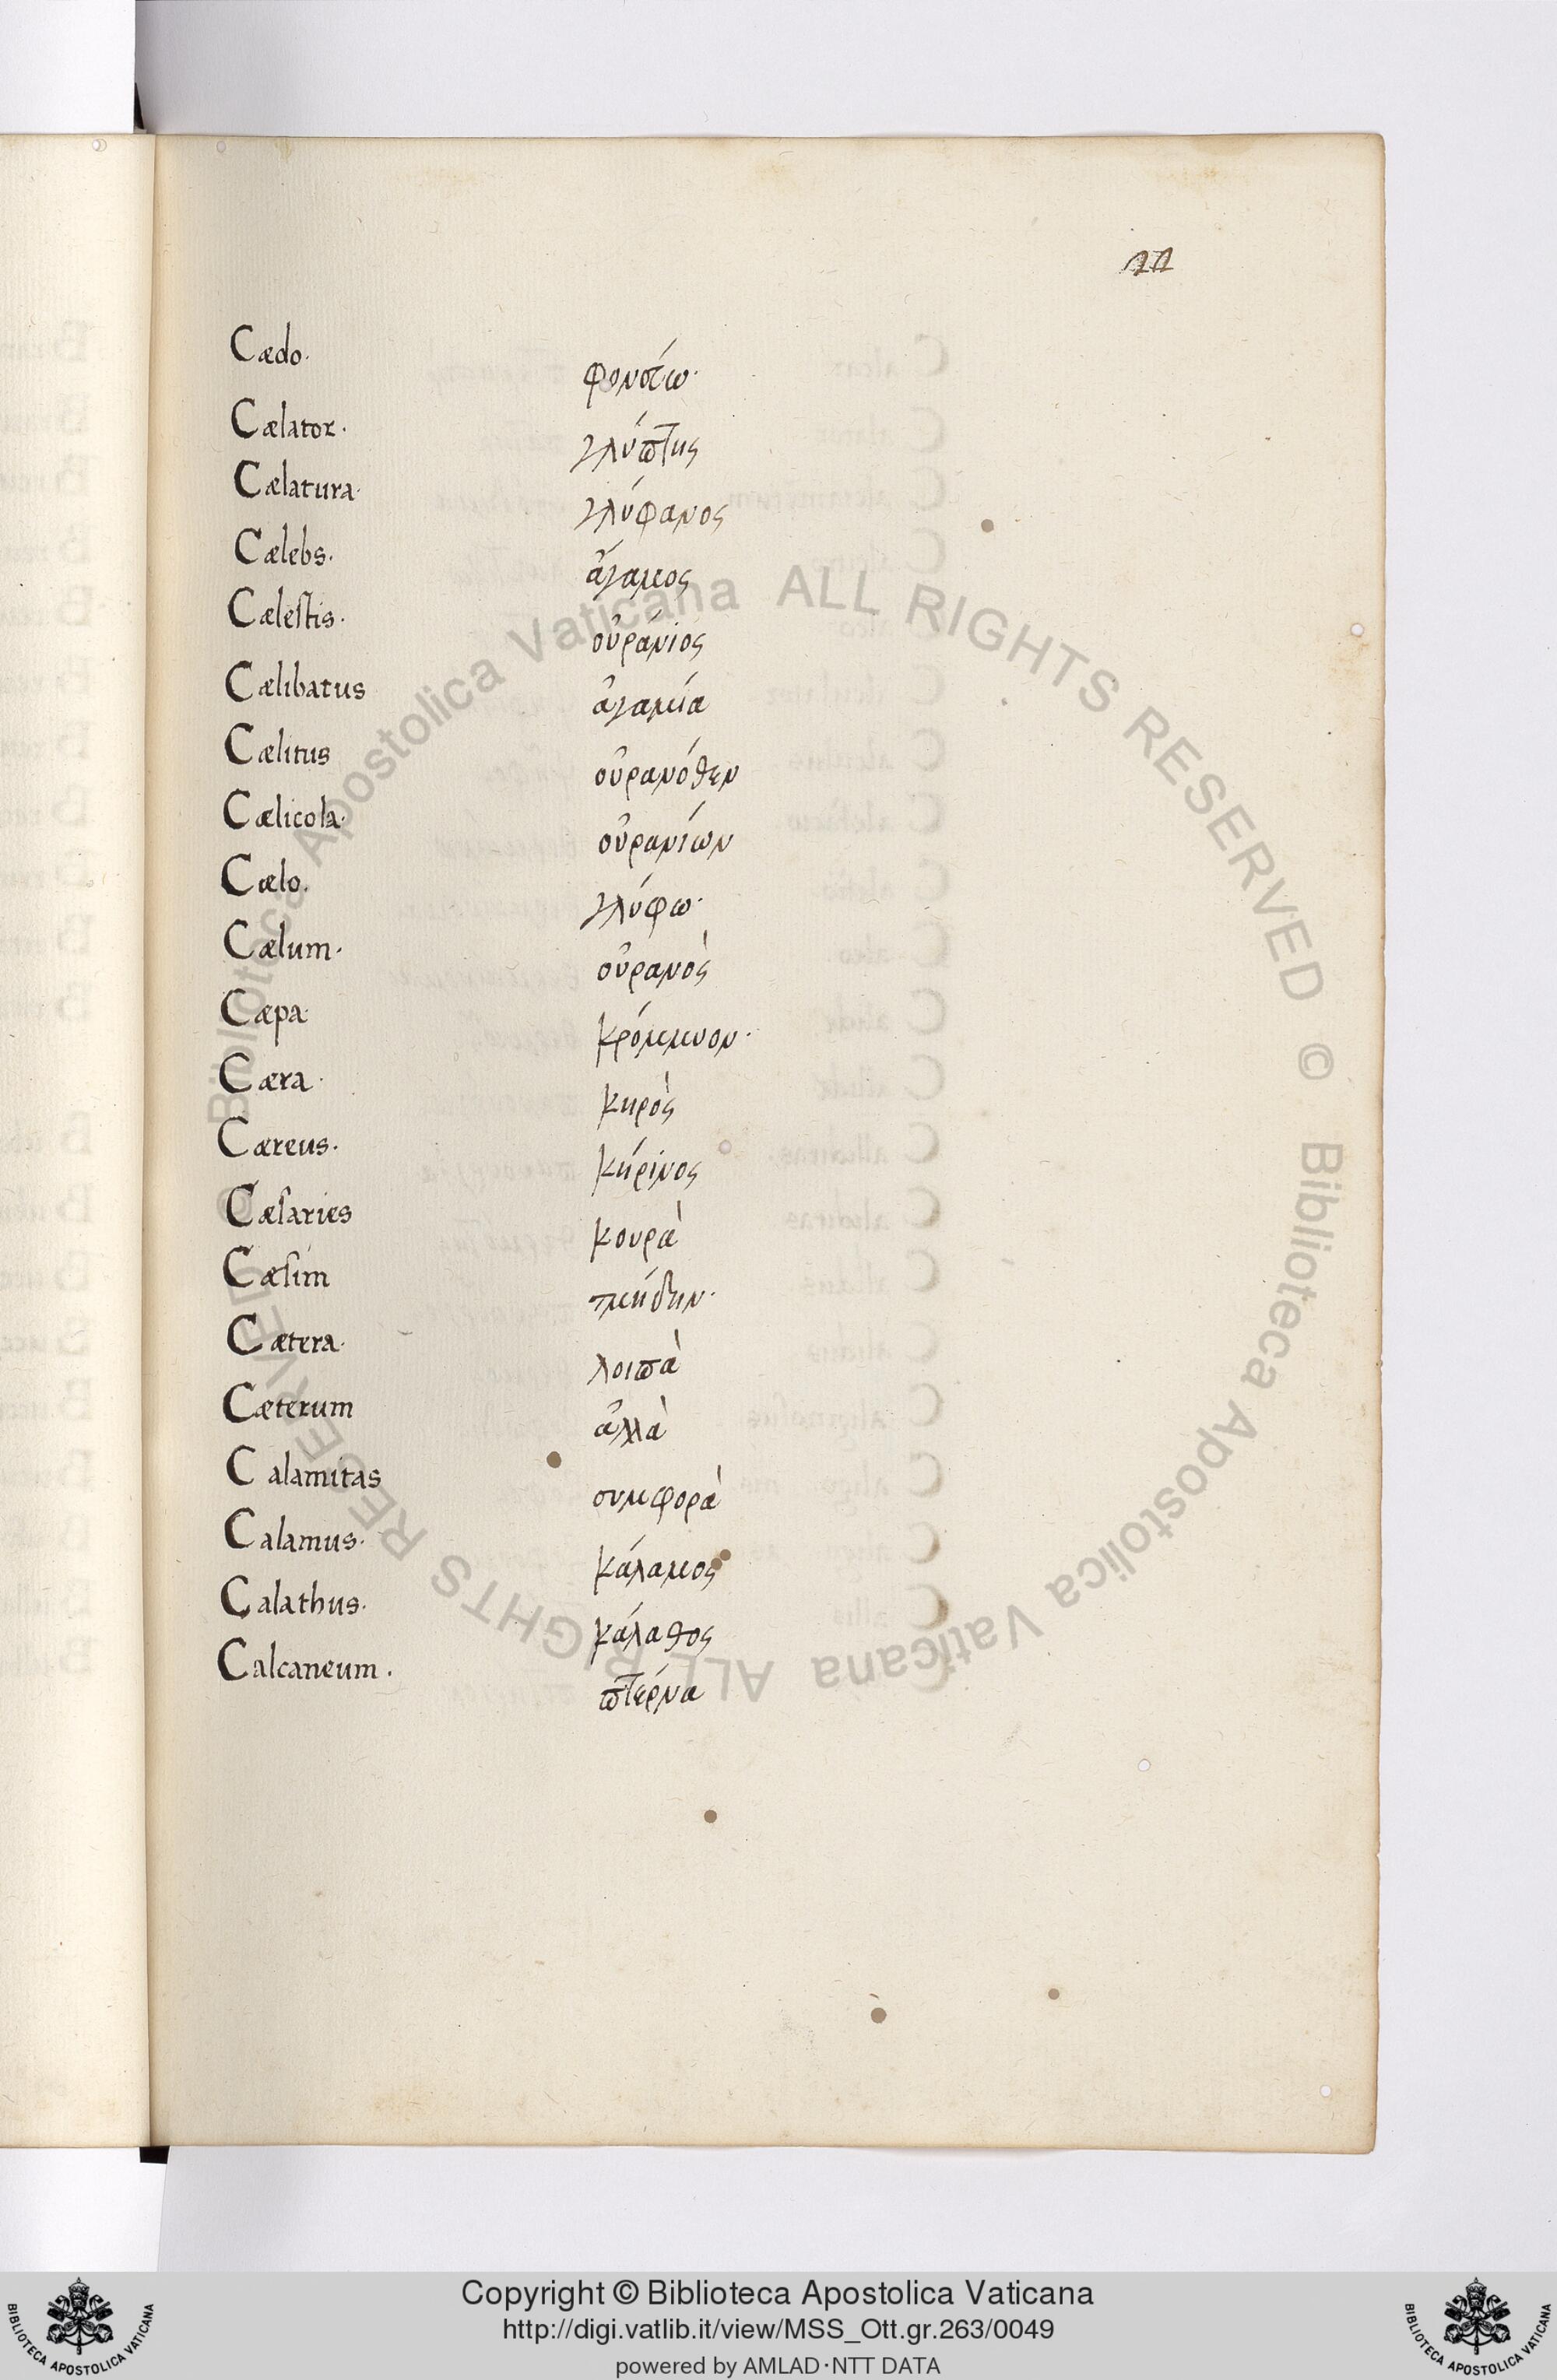 22
Cædo.
φονεύω.
Cælator.
γλύπτης
Cælatura.
γλύφανος
Cælebs.
ἄγαμος
Cælestis.
οὐράνιος
Cælibatus
ἀγαμία
Cælitus
οὐρανόθεν
Cælicola.
οὐρανίων
Cælo.
γλύφω.
Cælum.
οὐρανὸς
Cæpa.
κρόμμυον.
Cæra.
κηρὸς
Cæreus.
κήρινος
Cæsaries
κουρὰ
Cæsim
τμήδην.
Cætera.
λοιπὰ
Cæterum
ἀλλὰ
Calamitas
συμφορὰ
Calamus.
κάλαμος
Calathus.
κάλαθος
Calcaneum.
πτέρνα
Biblioteca Apostolica Vaticana ALL RIGHTS RESERVED © Biblioteca Apostolica Vaticana ALL RIGHTS RESERVED ©
Copyright © Biblioteca Apostolica Vaticana
http://digi.vatlib.it/view/MSS_Ott.gr.263/0049
powered by AMLAD·NTT DATA
BIBLIOTECA APOSTOLICA VATICANA
BIBLIOTECA APOSTOLICA VATICANA